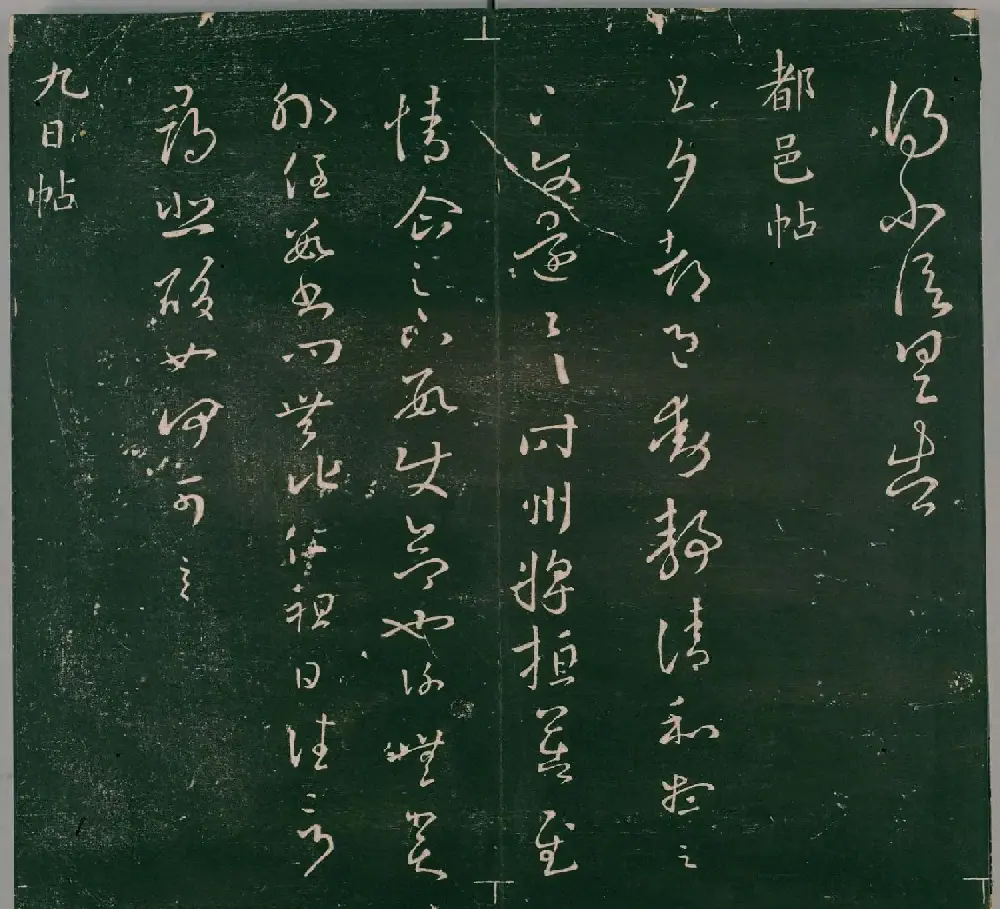 得不信具告
都邑帖
旦夕都邑動靜清和想足
下使還一一時州將桓公告慰
情企足下數使命也謝無奕
外任數書問無他仲祖日往言
尋悲酸如何可言
九日帖